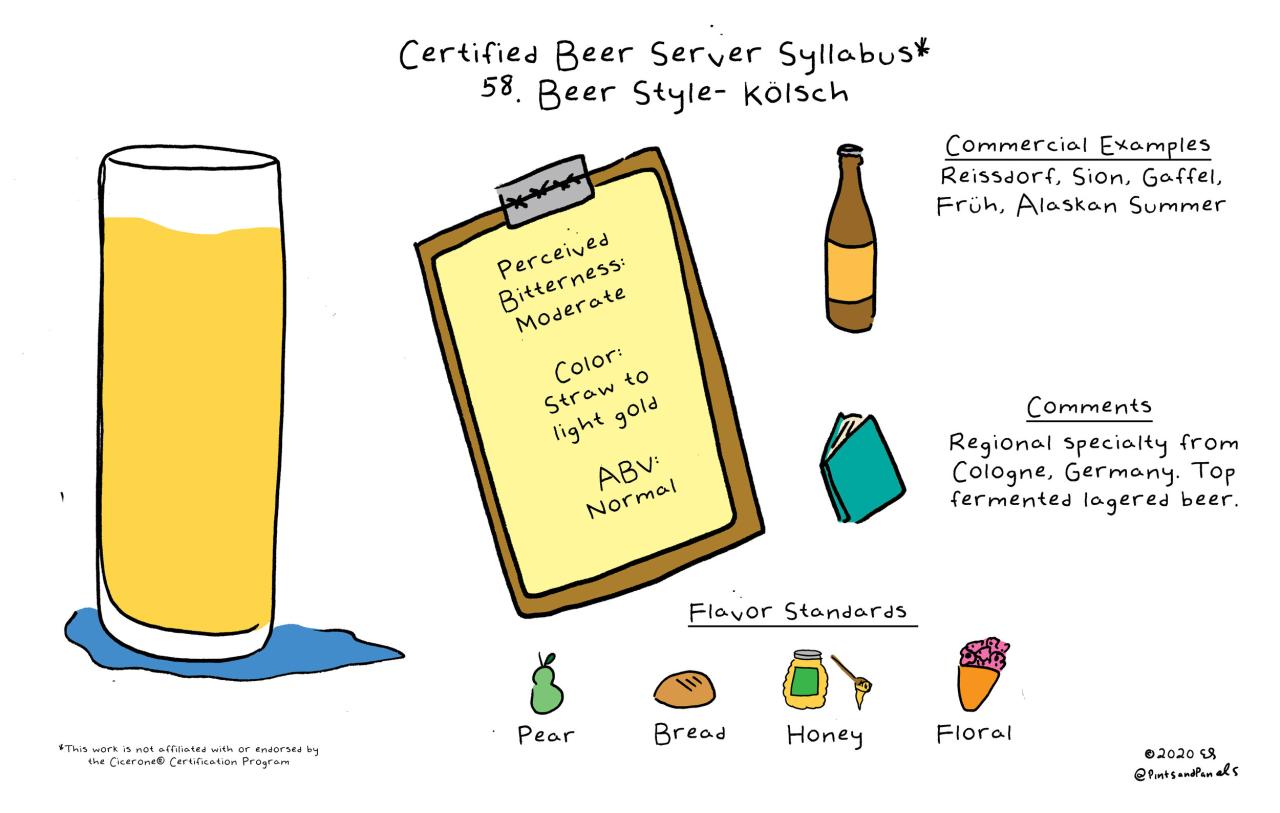 Certified Beer Server Syllabus*
58. Beer Style- Kölsch
Commercial Examples
Reissdorf, Sion, Gaffel,
Früh, Alaskan Summer
Perceived
Bitterness:
Moderate
Color:
Straw to
light gold
ABV:
Normal
Comments
Regional specialty from
Cologne, Germany. Top
fermented lagered beer.
Flavor Standards
Pear
Bread
Honey
Floral
*This work is not affiliated with or endorsed by
the Cicerone® Certification Program
©2020 ES
@PintsandPanels